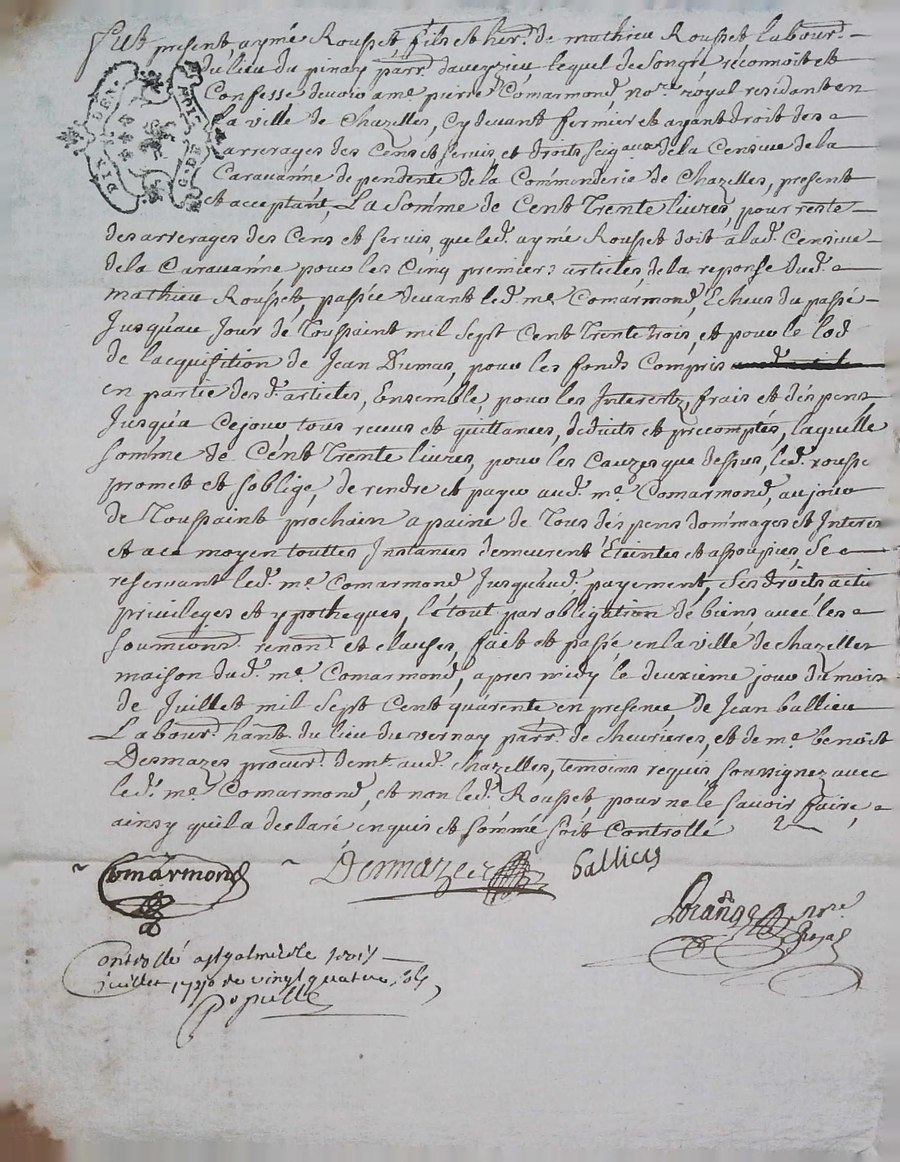 Fut present, aymé Rousset, fils et her. de mathieu Rousset labour.
du lieu du pinay parr. daveyzieu lequel de Son gré reconnoit et
Confesse devoir a me. pierre Comarmond, nore. royal residant en
la ville de Chazelles, Cy devant fermier et ayant droit des
arrerages des Cens et Servis et droits Seigaux de la Censive de la
Caravanne dependente de la Commenderie de Chazelles, present
et acceptant, La Somme de Cent Trente livres, pour reste
des arrerages des Cens et Servis, que led. aymé Rousset doit à lad. Censive
de la Caravanne pour les Cinq premiers articles de la reponse dud.
mathieu Rousset, passée devant led. me. Comarmond, Echeus du passé
Jusqu'au Jour de Toussaint mil Sept Cent Trente trois, et pour le lod
de lacquisition de Jean Dumas, pour les fonds Compris
en partie desd. articles, Ensemble, pour les Interertz, frais et dépens
Jusqu'a Cejour tous receus et quittances, deduits et precomptés, laquelle
Somme de Cent Trente livres, pour les Cauzes que dessus, led. rousse
promet et soblige, de rendre et payer aud. me. Comarmond, au jour
de Toussaint prochain a paine de Tous dépens dommages et Interes
et a ce moyen touttes Instances demeurent Eteintes et assoupies Se
reservant led. me. Comarmond Jusqu'aud. payement, Ses droits acti
privileges et ypotheques, le tout par obligation de biens avec les
Soumions. renond. et clauses, fait et passé en la ville de chazelles
maison dud. me. Comarmond, apres midy le deuxieme jour du mois
de Juillet mil Sept Cent quarente en presence, de Jean Gallieu
Labour. hant. du lieu du vernay parr. de chevrieres, et de me. benoist
Desmazes procur. demt. aud. chazelles, temoins requis, Soussignez avec
led. me. Comarmond, et non led. Rousset pour ne le Savoir faire,
ainsy quil a declaré enquis et Sommé Soit Controllé
Comarmond Desmazes gallieu
Lorange nore. Royal
Controllé a St galmier le trois
juillet 1740 re vingt quatre
populle